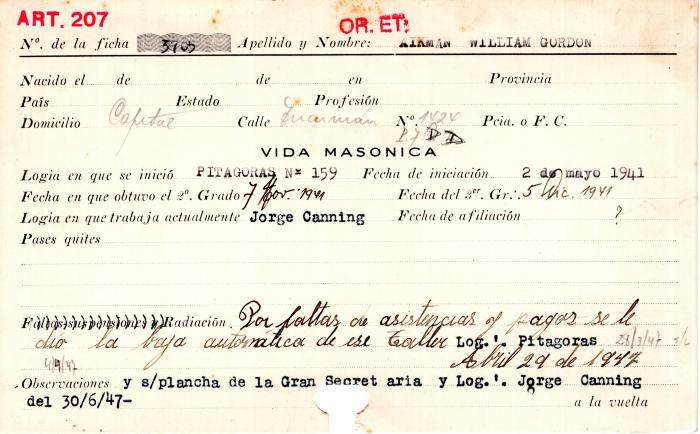 ART. 207
OR. ET.
Nº. de la ficha 3705 Apellido y Nombre: AIKMAN WILLIAM GORDON
Nacido el de de en Provincia
País Estado Profesión
Domicilio Capital Calle Tucumán Nº. 1424 Pcia. o F. C.
VIDA MASONICA
Logia en que se inició PITAGORAS Nº 159 Fecha de iniciación 2 de mayo 1941
Fecha en que obtuvo el 2º. Grado 7 Nov. 1941 Fecha del 3er. Gr.: 5 Dic. 1941
Logia en que trabaja actualmente Jorge Canning Fecha de afiliación ?
Pases quites
Faltas, suspensiones y Radiación. Por faltas de asistencias y pagos se le
dio la baja automática de ese Taller Log.'. Pitagoras 28/3/47 s/c
4/9/47 Abril 29 de 1947
Observaciones y s/plancha de la Gran Secret aria y Log.'. Jorge Canning
del 30/6/47-
a la vuelta